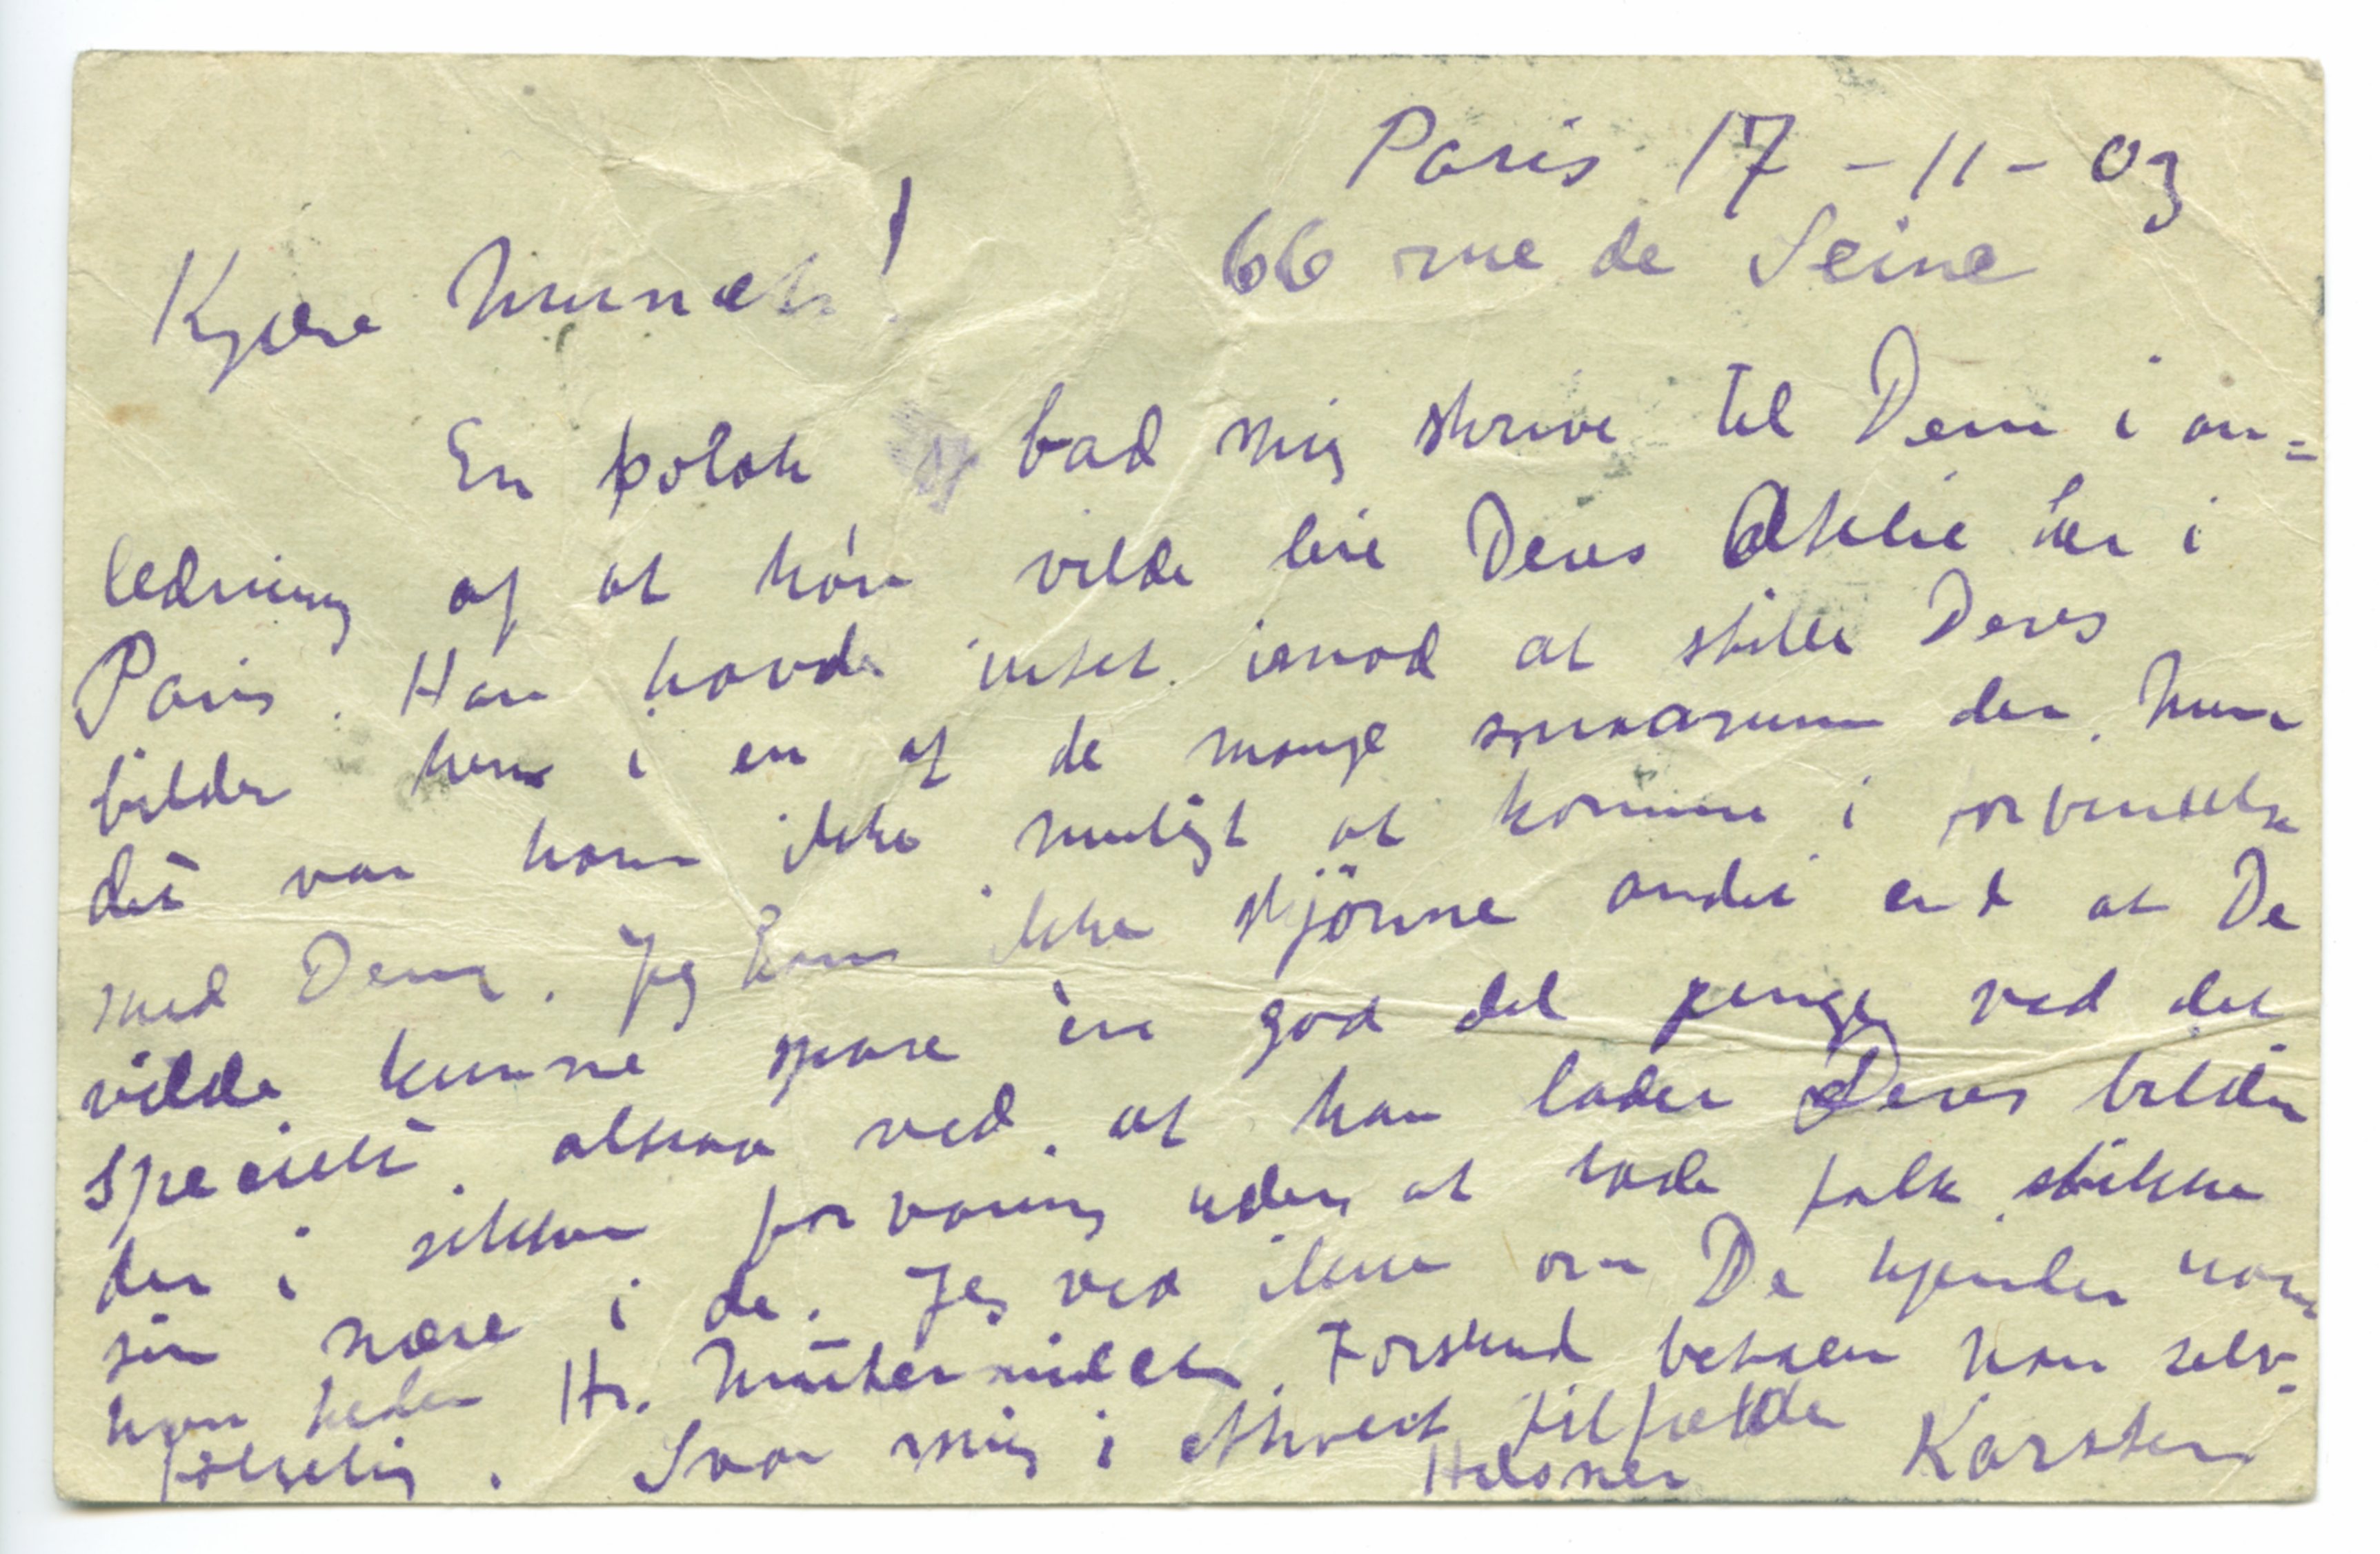 Paris 17-11-03
66 rue de Seine
Kjære Munch!
En polak bad mig skrive til Dem i an=
ledning af at han vilde leie Deres Atelie her i
Paris. Han havde intet imod at stille Deres
bilder hen i en af de mange smaarum der. Men
det var ham ikke muligt at komme i forbindelse
med Dem. Jeg kan ikke skjönne andet end at De
vilde kunne spare en god del penge ved det
specielt altsaa ved at han lader Deres bilder
der i sikker forvaring uden at lade folk stikke
sin næse i de. Jeg ved ikke om De kjender ham
han heder Hr. Mutermilch. Forskud betaler han selv-
følgelig. Svar mig i ethvert tilfælde
Hilsner Karsten